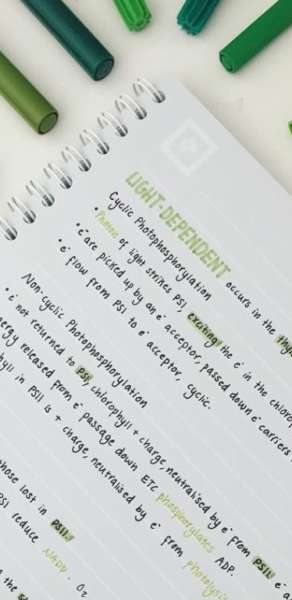 LIGHT-DEPENDENT occurs in the thyl
Cyclic Photophosphorylation
• Photon of light strikes PSI, exciting the e⁻ in the chlorop
• e⁻ are picked up by an e⁻ acceptor, passed down e⁻ carriers
• e⁻ flow from PSI to e⁻ acceptor, cyclic.
Non-cyclic Photophosphorylation
• e⁻ not returned to PSI, chlorophyll + charge, neutralised by e⁻ from PSII
ergy released from e⁻ passage down ETC phosphorylates ADP.
hyll in PSII is + charge, neutralised by e⁻ from photolysis
those lost in PSII.
PSI reduce NADP. O₂